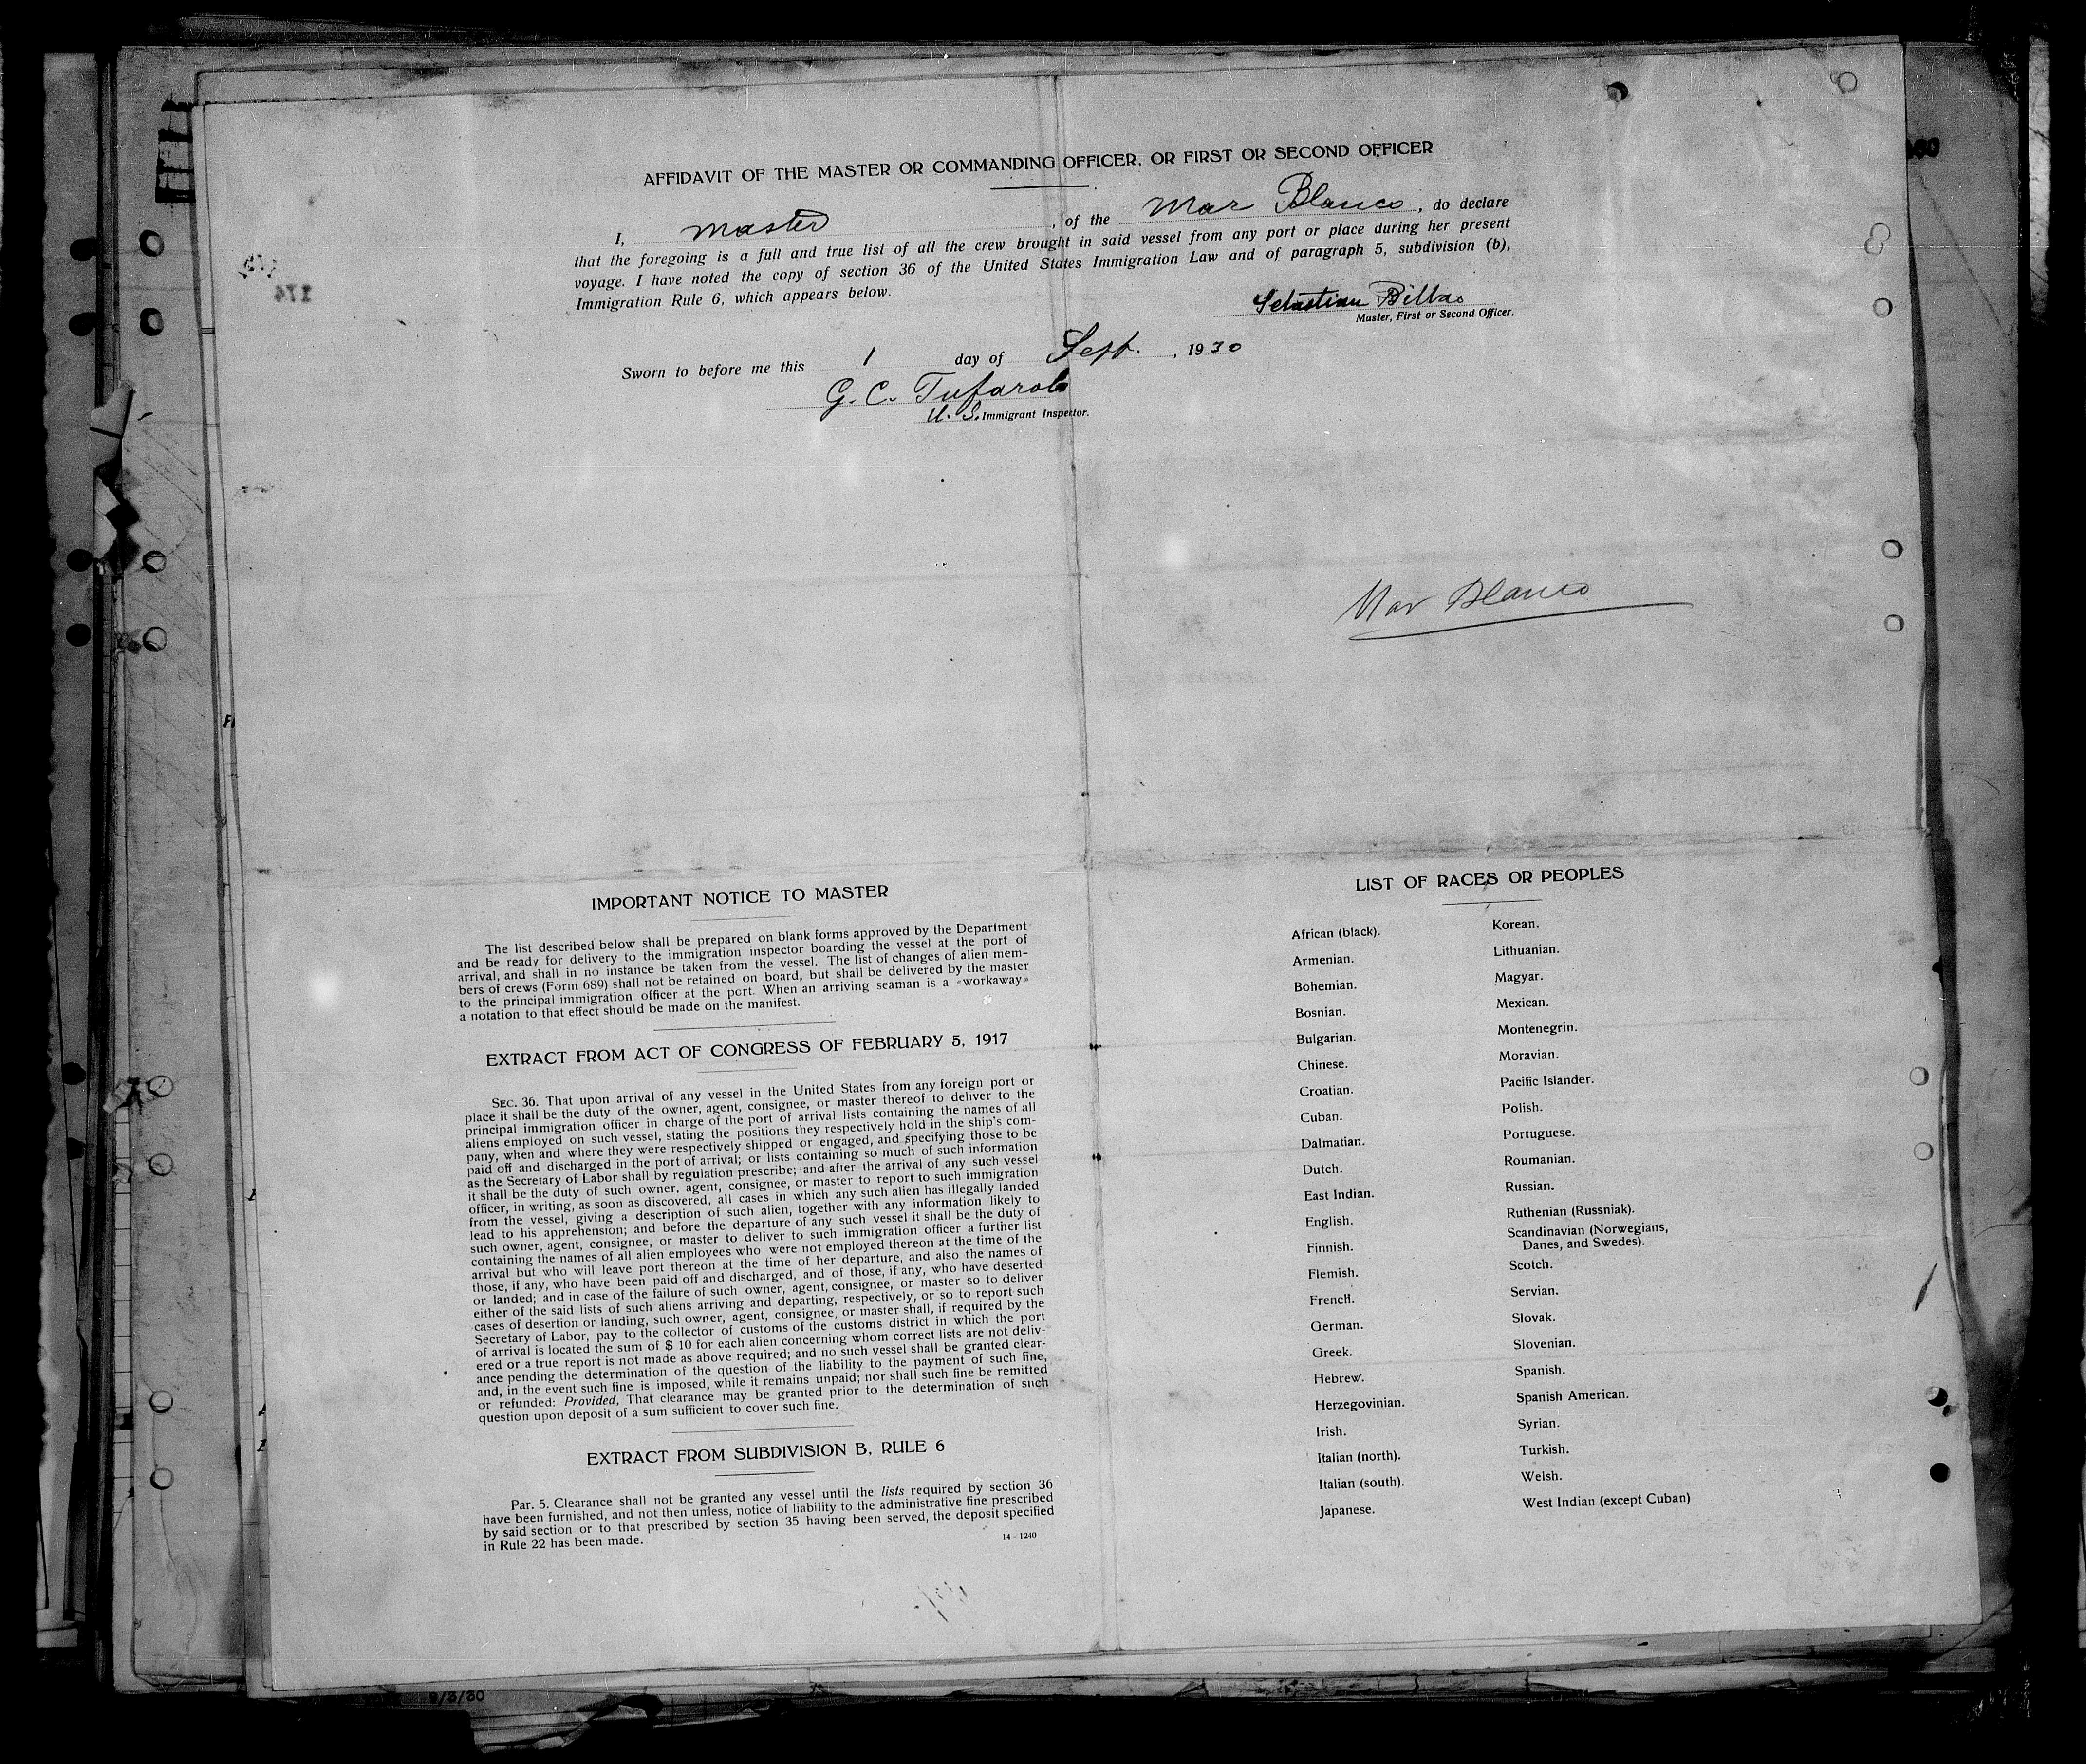 AFFIDAVIT OF THE MASTER OR COMMANDING OFFICER, OR FIRST OR SECOND OFFICER
I, master, of the Mar Blanco, do declare
that the foregoing is a full and true list of all the crew brought in said vessel from any port or place during her present
voyage. I have noted the copy of section 36 of the United States Immigration Law and of paragraph 5, subdivision (b),
Immigration Rule 6, which appears below.
Sebastian Bilbao
Master, First or Second Officer.
Sworn to before me this 1 day of Sept., 1930
G. C. Tufarolo
U. S. Immigrant Inspector.
174
Mar Blanco
IMPORTANT NOTICE TO MASTER
The list described below shall be prepared on blank forms approved by the Department
and be ready for delivery to the immigration inspector boarding the vessel at the port of
arrival, and shall in no instance be taken from the vessel. The list of changes of alien mem-
bers of crews (Form 689) shall not be retained on board, but shall be delivered by the master
to the principal immigration officer at the port. When an arriving seaman is a «workaway»
a notation to that effect should be made on the manifest.
EXTRACT FROM ACT OF CONGRESS OF FEBRUARY 5, 1917
SEC. 36. That upon arrival of any vessel in the United States from any foreign port or
place it shall be the duty of the owner, agent, consignee, or master thereof to deliver to the
principal immigration officer in charge of the port of arrival lists containing the names of all
aliens employed on such vessel, stating the positions they respectively hold in the ship's com-
pany, when and where they were respectively shipped or engaged, and specifying those to be
paid off and discharged in the port of arrival; or lists containing so much of such information
as the Secretary of Labor shall by regulation prescribe; and after the arrival of any such vessel
it shall be the duty of such owner, agent, consignee, or master to report to such immigration
officer, in writing, as soon as discovered, all cases in which any such alien has illegally landed
from the vessel, giving a description of such alien, together with any information likely to
lead to his apprehension; and before the departure of any such vessel it shall be the duty of
such owner, agent, consignee, or master to deliver to such immigration officer a further list
containing the names of all alien employees who were not employed thereon at the time of the
arrival but who will leave port thereon at the time of her departure, and also the names of
those, if any, who have been paid off and discharged, and of those, if any, who have deserted
or landed; and in case of the failure of such owner, agent, consignee, or master so to deliver
either of the said lists of such aliens arriving and departing, respectively, or so to report such
cases of desertion or landing, such owner, agent, consignee, or master shall, if required by the
Secretary of Labor, pay to the collector of customs of the customs district in which the port
of arrival is located the sum of $ 10 for each alien concerning whom correct lists are not deliv-
ered or a true report is not made as above required; and no such vessel shall be granted clear-
ance pending the determination of the question of the liability to the payment of such fine,
and, in the event such fine is imposed, while it remains unpaid; nor shall such fine be remitted
or refunded: Provided, That clearance may be granted prior to the determination of such
question upon deposit of a sum sufficient to cover such fine.
EXTRACT FROM SUBDIVISION B, RULE 6
Par. 5. Clearance shall not be granted any vessel until the lists required by section 36
have been furnished, and not then unless, notice of liability to the administrative fine prescribed
by said section or to that prescribed by section 35 having been served, the deposit specified
in Rule 22 has been made.
14-1240
LIST OF RACES OR PEOPLES
African (black).
Armenian.
Bohemian.
Bosnian.
Bulgarian.
Chinese.
Croatian.
Cuban.
Dalmatian.
Dutch.
East Indian.
English.
Finnish.
Flemish.
French.
German.
Greek.
Hebrew.
Herzegovinian.
Irish.
Italian (north).
Italian (south).
Japanese.
Korean.
Lithuanian.
Magyar.
Mexican.
Montenegrin.
Moravian.
Pacific Islander.
Polish.
Portuguese.
Roumanian.
Russian.
Ruthenian (Russniak).
Scandinavian (Norwegians,
Danes, and Swedes).
Scotch.
Servian.
Slovak.
Slovenian.
Spanish.
Spanish American.
Syrian.
Turkish.
Welsh.
West Indian (except Cuban)
9/3/30